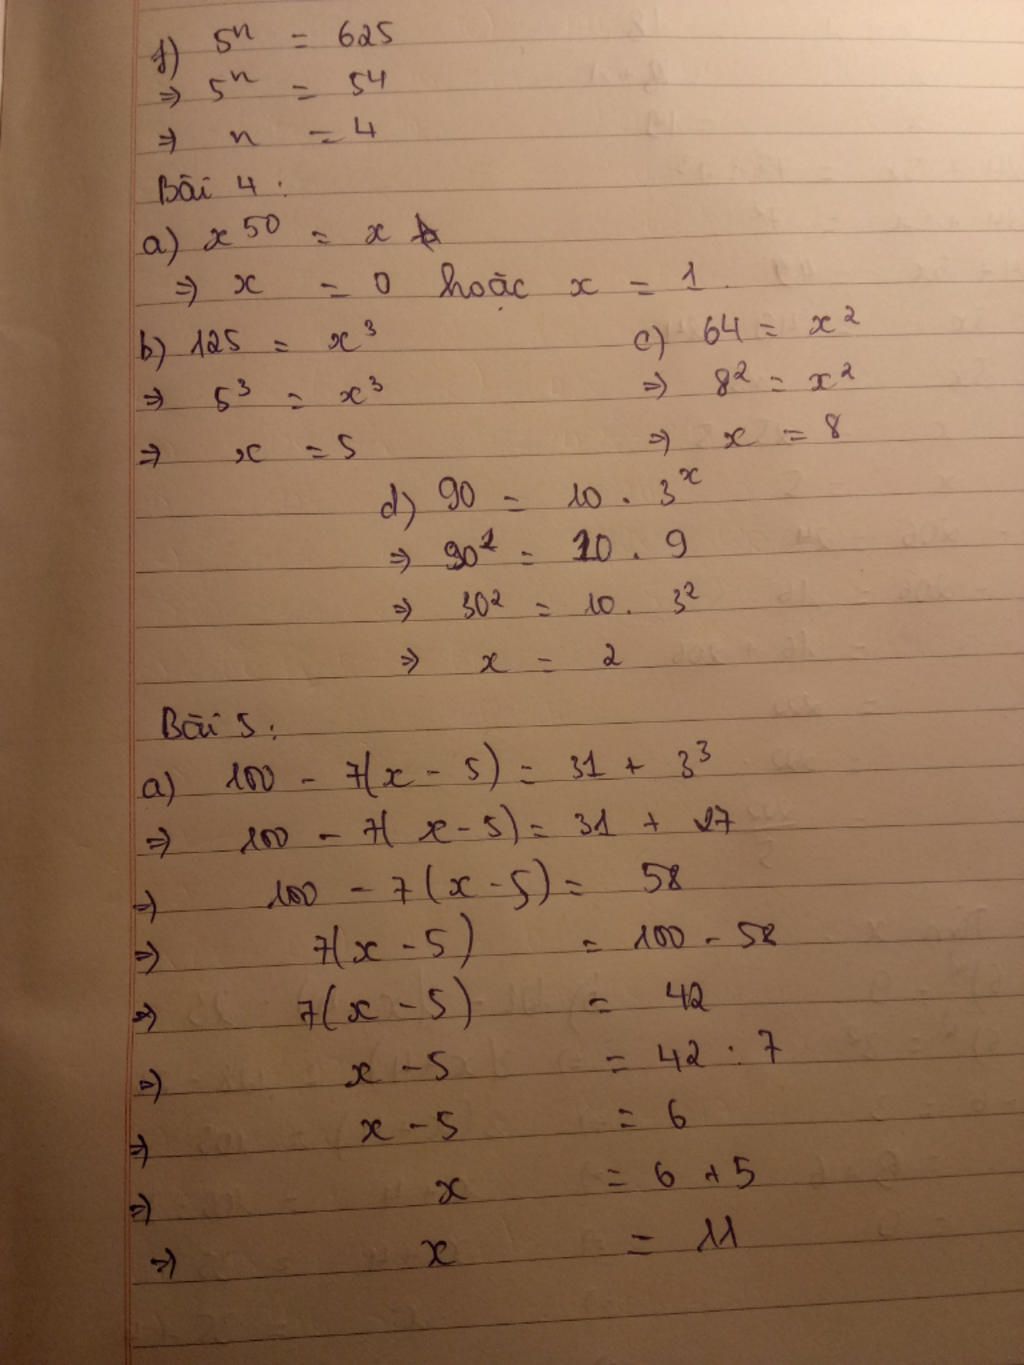 f) 5ⁿ = 625
=> 5ⁿ = 5⁴
=> n = 4
Bài 4:
a) x⁵⁰ = x
=> x = 0 hoặc x = 1.
b) 125 = x³
=> 5³ = x³
=> x = 5
c) 64 = x²
=> 8² = x²
=> x = 8
d) 90 = 10 . 3ˣ
=> 90¹ = 10 . 9
=> 30² = 10 . 3²
=> x = 2
Bài 5:
a) 100 - 7(x - 5) = 31 + 3³
=> 100 - 7(x - 5) = 31 + 27
=> 100 - 7(x - 5) = 58
=> 7(x - 5) = 100 - 58
=> 7(x - 5) = 42
=> x - 5 = 42 : 7
=> x - 5 = 6
=> x = 6 + 5
=> x = 11